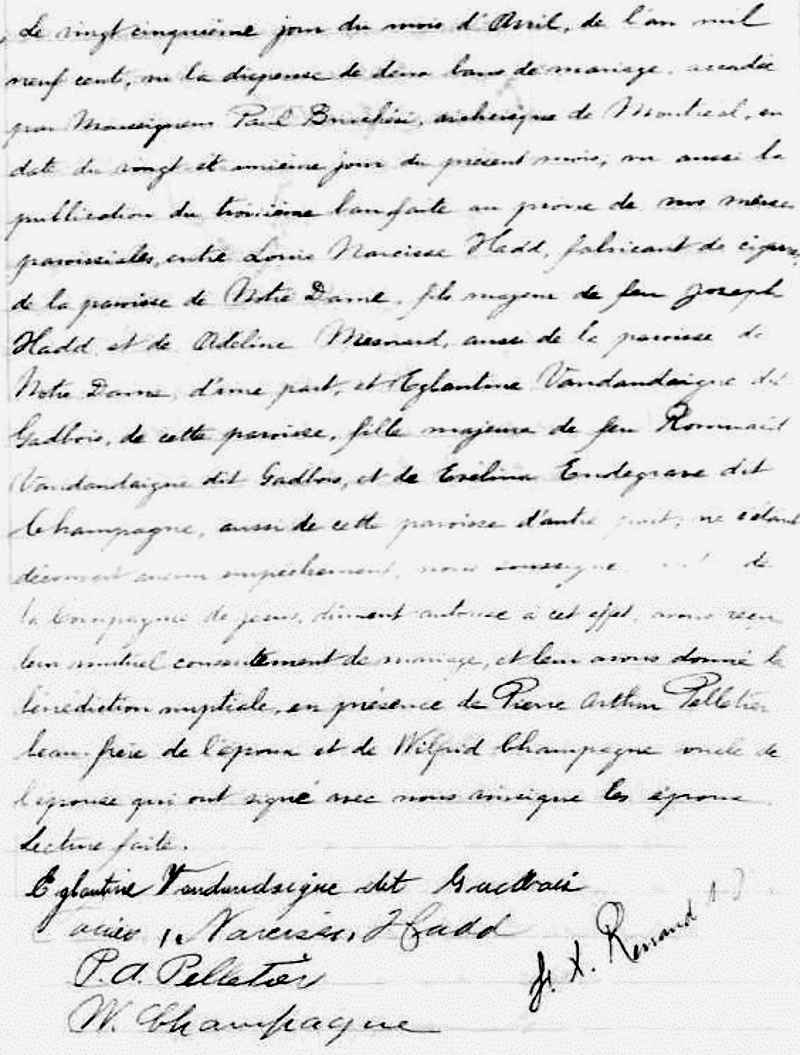 Le vingt cinquième jour du mois d'Avril, de l'an mil
neuf cent, vu la dispense de deux bans de mariage, accordée
par Monseigneur Paul Bruchési, archevêque de Montreal, en
date du vingt et unième jour du présent mois, vu aussi la
publication du troisième ban faite au prone de nos messes
paroissiales, entre Louis Narcisse Hadd, fabricant de cigares,
de la paroisse de Notre Dame, fils majeur de feu Joseph
Hadd et de Adeline Mesnard, aussi de la paroisse de
Notre Dame, d'une part, et Eglantine Vandandaigue dit
Gadbois, de cette paroisse, fille majeure de feu Romuald
Vandandaigue dit Gadbois, et de Evélina Endegrave dit
Champagne, aussi de cette paroisse d'autre part, ne s'étant
découvert aucun empêchement, nous soussigné de
la Compagnie de Jesus, dûment autorisé à cet effet, avons reçu
leur mutuel consentement de mariage, et leur avons donné la
bénédiction nuptiale, en présence de Pierre Arthur Pelletier
beau-frère de l'époux et de Wilfrid Champagne oncle de
l'épouse qui ont signé avec nous ainsi que les époux
Lecture faite.
Eglantine Vandandaigue dit Gadbois
Louis Narcisse Hadd
P. A. Pelletier
W. Champagne
F. X. Renaud S J